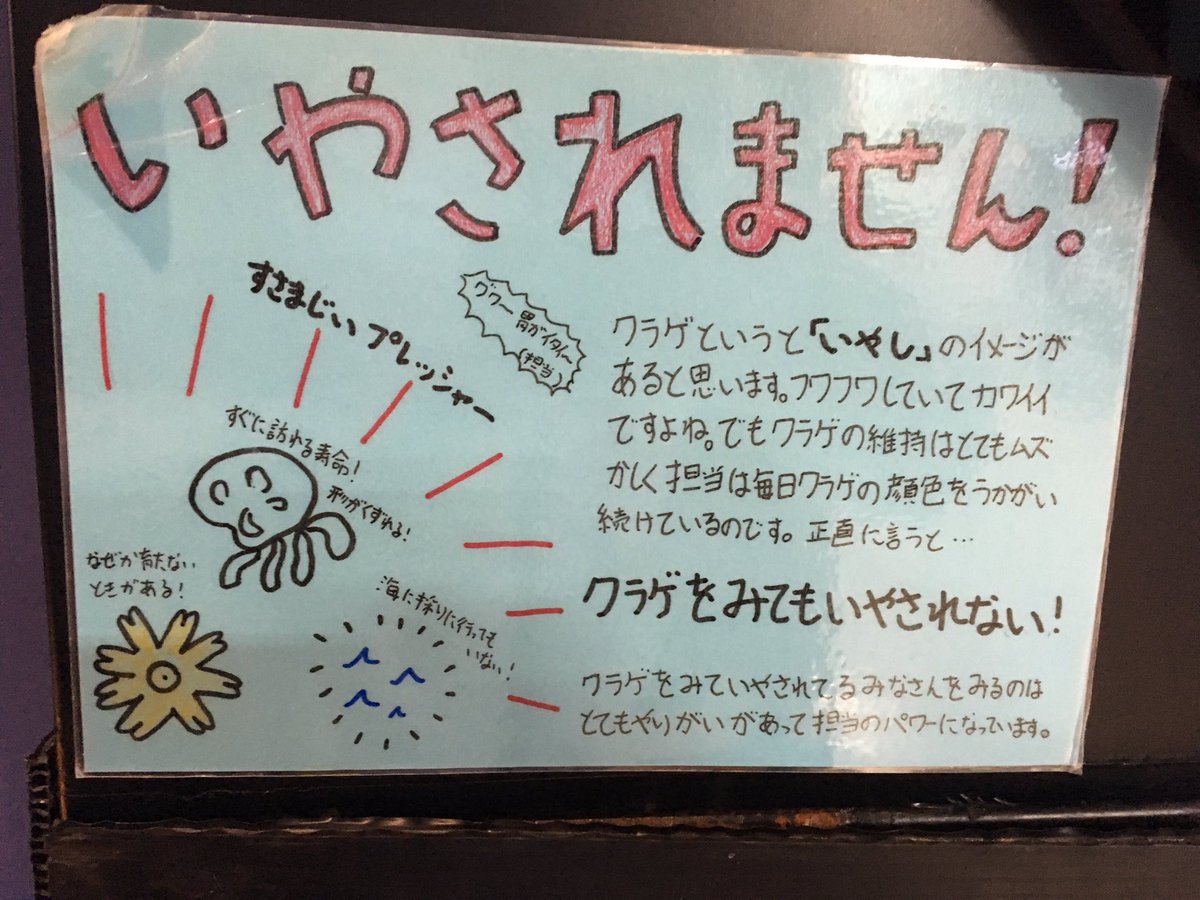 いやされません!
すさまじいプレッシャー
グワー胃がイタイ〜
(担当)
すぐに訪れる寿命!
形がくずれる!
なぜか育たない
ときがある!
海に採りに行っても
いない!
クラゲというと「いやし」のイメージが
あると思います。フワフワしていてカワイイ
ですよね。でもクラゲの維持はとてもムズ
かしく担当は毎日クラゲの顔色をうかがい
続けているのです。正直に言うと…
クラゲをみてもいやされない!
クラゲをみていやされてるみなさんをみるのは
とてもやりがいがあって担当のパワーになっています。